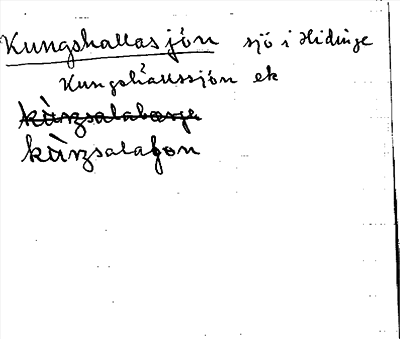 Kungshallasjön sjö i Hidinge
Kungshallssjön ek
kùŋsalabærje
kùŋsalaʃøn